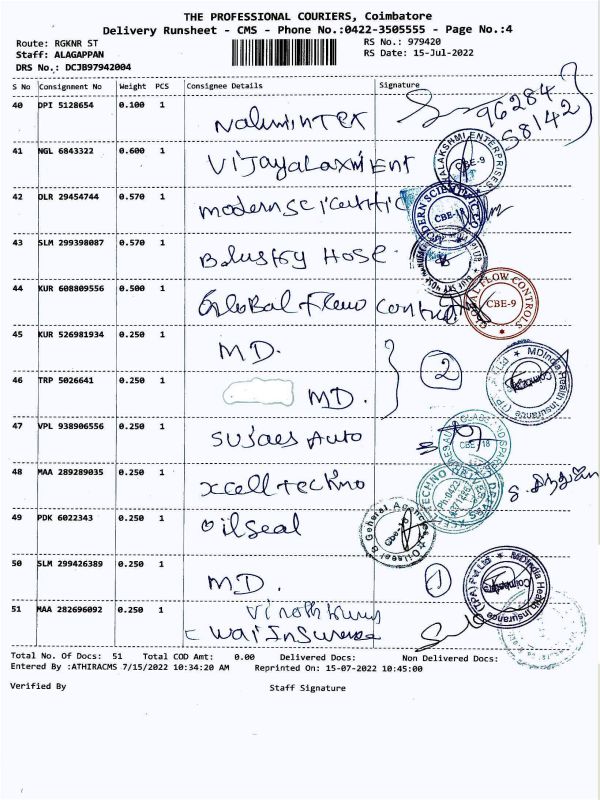 THE PROFESSIONAL COURIERS, Coimbatore
Delivery Runsheet - CMS - Phone No.:0422-3505555 - Page No.:4
Route: RGKNR ST
RS No.: 979420
Staff: ALAGAPPAN
RS Date: 15-Jul-2022
DRS No.: DCJB97942004
S No Consignment No Weight PCS Consignee Details Signature
40 DPI 5128654 0.100 1
96284
58142
41 NGL 6843322 0.600 1 Vijayalaxmi Ent
CBE-9
42 DLR 29454744 0.570 1 modern scientific
CBE-
43 SLM 299398087 0.570 1 Hose
44 KUR 608809556 0.500 1 Global Flow Control
GLOBAL FLOW CONTROLS CBE-9
45 KUR 526981934 0.250 1 MD.
2
MDIndia Health Insurance (TPA) P Ltd Coimbatore
46 TRP 5026641 0.250 1 MD.
47 VPL 938906556 0.250 1 Auto
CBE 18
48 MAA 289289035 0.250 1 xcell techno
49 PDK 6022343 0.250 1 oilseal
Oilseal & General Agencies
50 SLM 299426389 0.250 1 MD.
1
MDIndia Health Insurance (TPA) Pvt Ltd Coimbatore
51 MAA 282696092 0.250 1
Total No. Of Docs: 51 Total COD Amt: 0.00 Delivered Docs: Non Delivered Docs:
Entered By :ATHIRACMS 7/15/2022 10:34:20 AM Reprinted On: 15-07-2022 10:45:00
Verified By Staff Signature